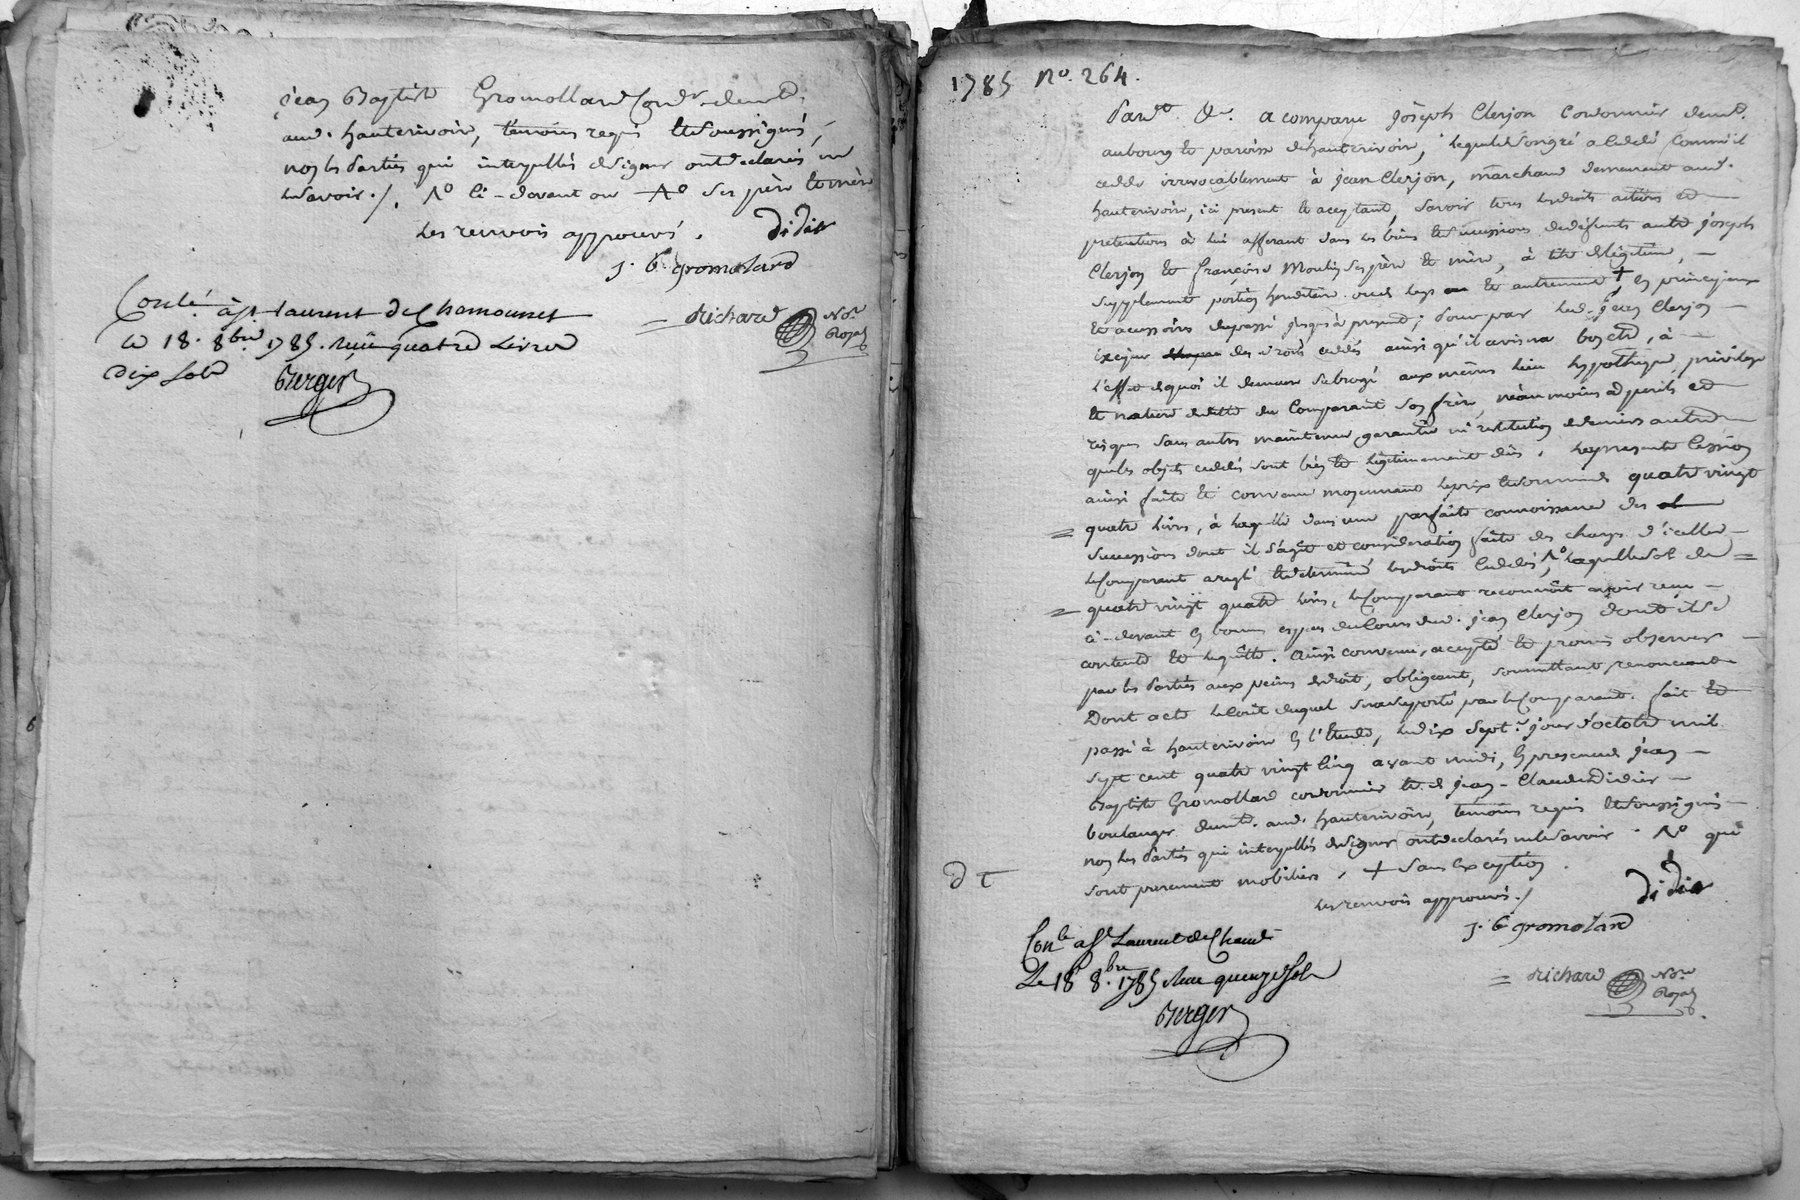 jean Baptiste Gromolland Cord.r demt.
aud. hauterivoire, temoins requis et soussignés,
non les parties qui interpellés de signer ont declarés ne
le savoir ./. No ci-devant ou No ses père et mère
Les renvois approuvés .
didier
J. B gromolard
Richard Nore Royal
Contlé. à St. Laurent de Chamousset
Le 18. 8bre 1785. Reçu quatre Livres
dix sols
Berger
1785 No. 264.
Pardt. &c. a comparu joseph Clerjon Cordonnier demt.
au bourg et paroisse de hauterivoire, lequel de son gré a cédé comme il
cedde irrevocablement à jean Clerjon, marchand demeurant aud.
hauterivoire, ici present et acceptant, savoir tous les droits actions et
pretentions à lui afferant dans les biens et successions de défunts autre joseph
Clerjon et françoise Moulin ses père et mère, à titre de légitime,
supplement portion hereditaire et autrement + en principaux
et accessoires du passé jusqu'à present ; pour par led. jean Clerjon
exiger des droits ceddés ainsi qu'il avisera bon etre, à
l'effet de quoi il demeure subrogé aux mêmes lieu hypotheque, privilege
et nature de dette du Comparant son frère, néanmoins à ses perils et
risques sans autre maintenue garantie ni restitution de deniers autre
que les objets ceddés sont bien et légitimement dûs . La presente Cession
ainsi faite et convenue moyennant le prix et somme de quatre vingt
quatre livres, à laquelle dans une parfaite connoissance des
successions dont il s'agit et consideration faite des charges d'icelles
le Comparant a reglé et determiné les droits ceddés, No laquelle somme de
quatre vingt quatre livres, le Comparant reconnoit avoir reçu
ci-devant en bonnes especes du Cours dud. jean Clerjon dont il se
contente et le quitte. Ainsi convenu, accepté et promis observer
par les parties aux peines de droit, obligeant, soumettant, renonceant
Dont acte le Coût duquel sera suporté par le Comparant. fait et
passé à hauterivoire en l'Etude, le dix sept.e jour d'octobre mil
sept cent quatre vingt Cinq avant midi, en presence de jean
Baptiste Gromolland cordonnier et de jean-Claude Didier
boulanger demt. aud. hauterivoire, temoins requis et soussignés
non les parties qui interpellés de signer ont declarés ne le savoir . No qui
sont purement mobiliers , + sans exception .
Les renvois approuvés ./
didier
J. B gromolard
Conlé a St Laurent de Cham.
Le 18 8bre. 1785 Reçu quinze sols
Berger
Richard Nore Royal